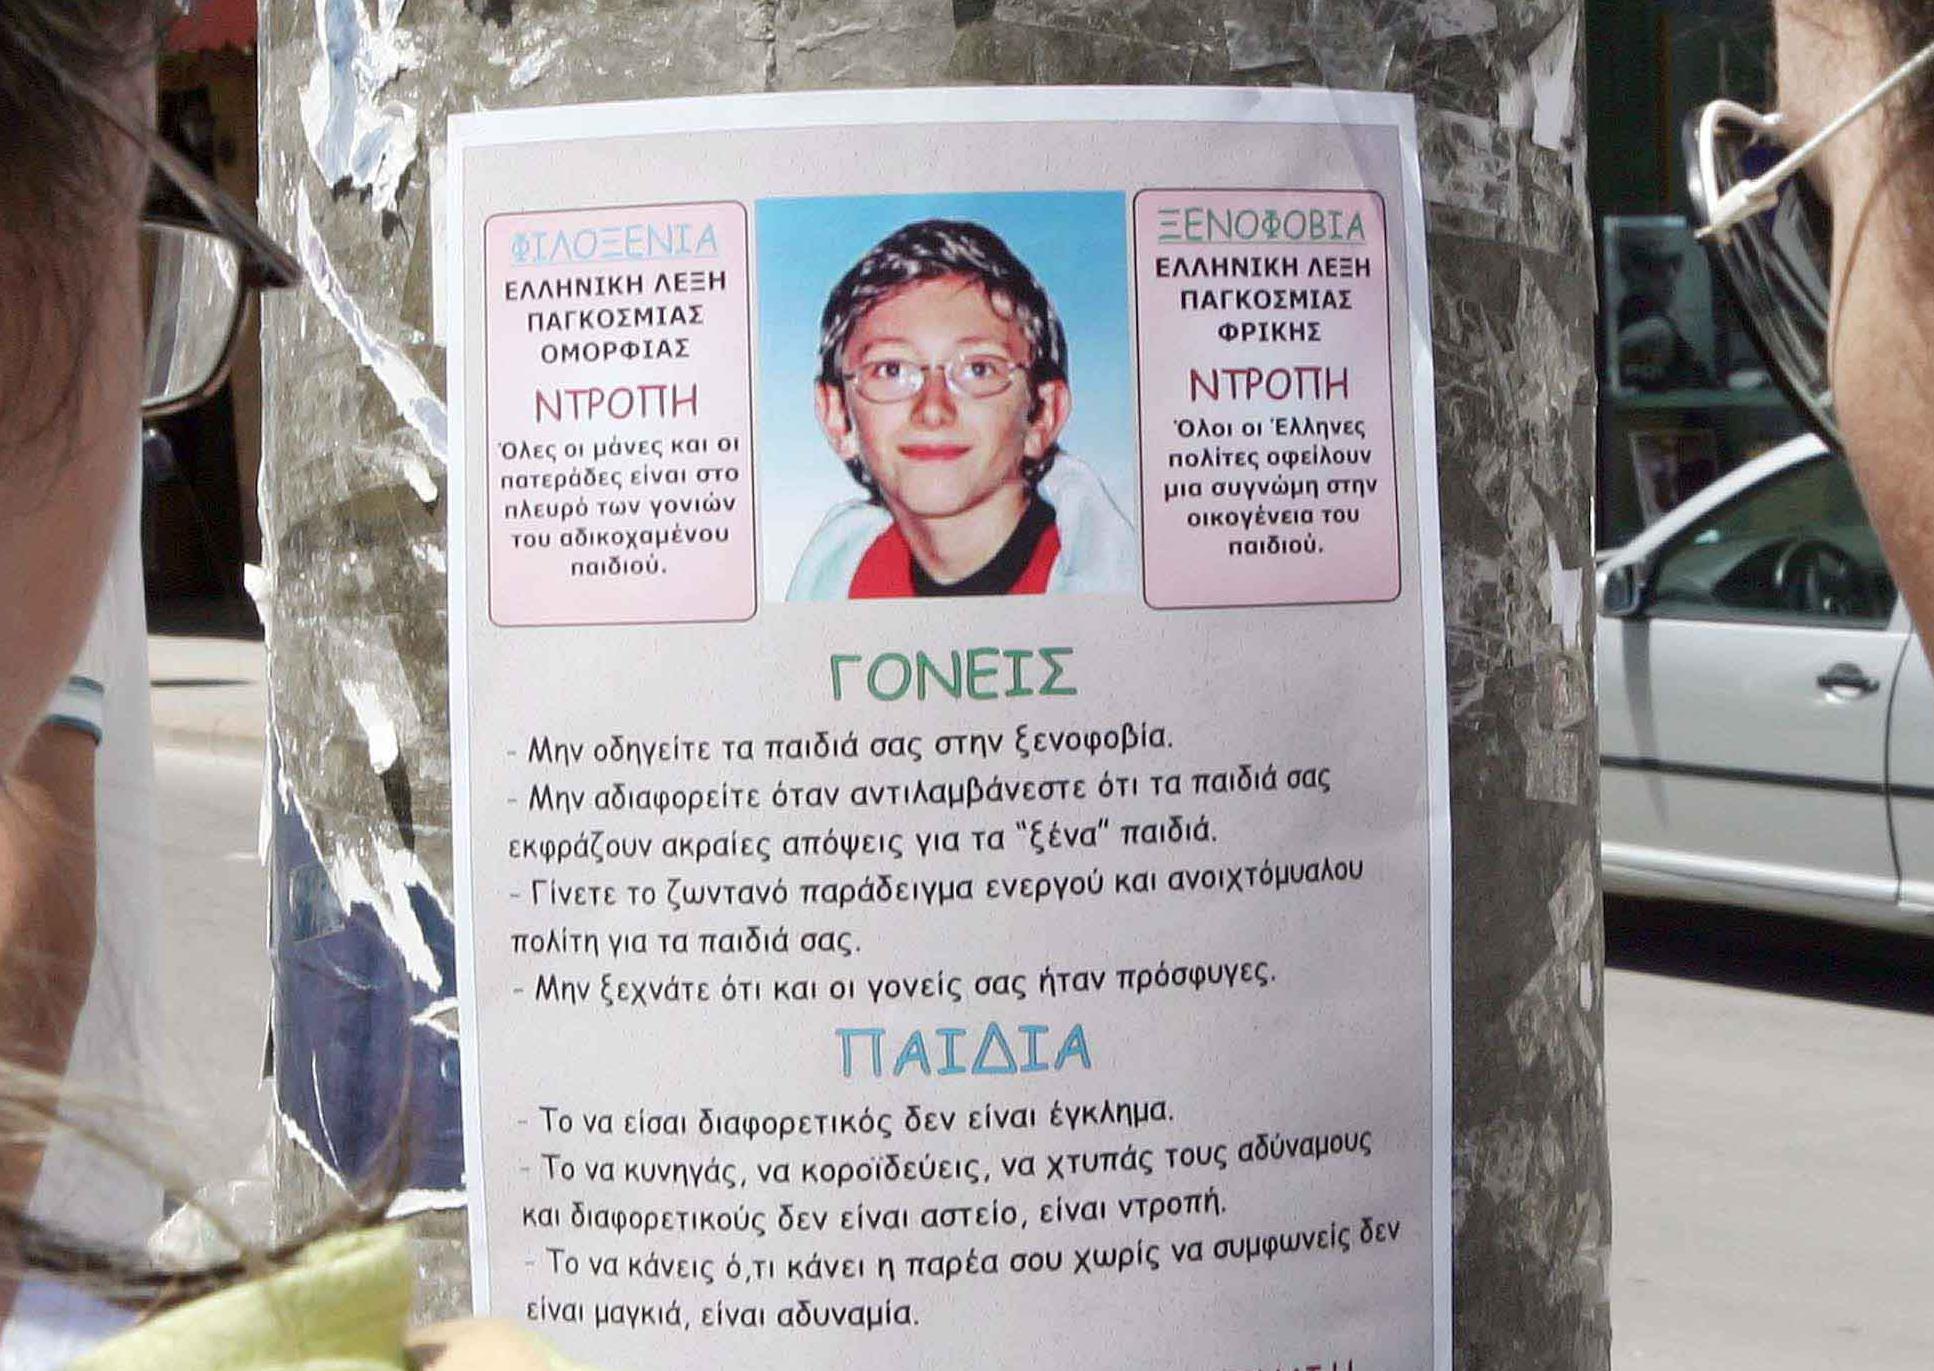 ΦΙΛΟΞΕΝΙΑ
ΕΛΛΗΝΙΚΗ ΛΕΞΗ
ΠΑΓΚΟΣΜΙΑΣ
ΟΜΟΡΦΙΑΣ
ΝΤΡΟΠΗ
Όλες οι μάνες και οι
πατεράδες είναι στο
πλευρό των γονιών
του αδικοχαμένου
παιδιού.
ΞΕΝΟΦΟΒΙΑ
ΕΛΛΗΝΙΚΗ ΛΕΞΗ
ΠΑΓΚΟΣΜΙΑΣ
ΦΡΙΚΗΣ
ΝΤΡΟΠΗ
Όλοι οι Έλληνες
πολίτες οφείλουν
μια συγνώμη στην
οικογένεια του
παιδιού.
ΓΟΝΕΙΣ
- Μην οδηγείτε τα παιδιά σας στην ξενοφοβία.
- Μην αδιαφορείτε όταν αντιλαμβάνεστε ότι τα παιδιά σας
εκφράζουν ακραίες απόψεις για τα "ξένα" παιδιά.
- Γίνετε το ζωντανό παράδειγμα ενεργού και ανοιχτόμυαλου
πολίτη για τα παιδιά σας.
- Μην ξεχνάτε ότι και οι γονείς σας ήταν πρόσφυγες.
ΠΑΙΔΙΑ
- Το να είσαι διαφορετικός δεν είναι έγκλημα.
- Το να κυνηγάς, να κοροϊδεύεις, να χτυπάς τους αδύναμους
και διαφορετικούς δεν είναι αστείο, είναι ντροπή.
- Το να κάνεις ό,τι κάνει η παρέα σου χωρίς να συμφωνείς δεν
είναι μαγκιά, είναι αδυναμία.